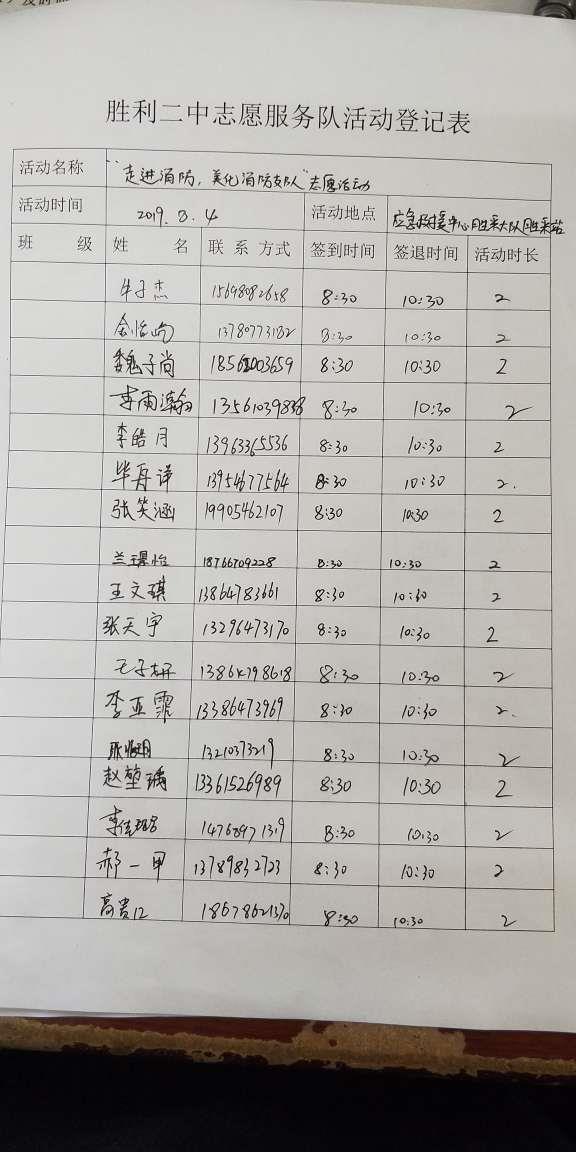 胜利二中志愿服务队活动登记表
活动名称 “走进消防，美化消防支队”志愿活动
活动时间 2019.8.4 活动地点 应急救援中心胜采大队胜采站
班 级 姓 名 联 系 方式 签到时间 签退时间 活动时长
牛子杰 15698082658 8:30 10:30 2
13780773182 8:30 10:30 2
魏子尚 8:30 10:30 2
李雨瀚 8:30 10:30 2
李皓月 13963365536 8:30 10:30 2
毕再详 13954677564 8:30 10:30 2.
张笑涵 19905462107 8:30 10:30 2
兰琨怡 18766709228 8:30 10:30 2
王文琪 13864783661 8:30 10:30 2
张天宇 13296473170 8:30 10:30 2
王子妍 8:30 10:30 2
李亚霏 13386473969 8:30 10:30 2.
13210373219 8:30 10:30 2
赵堃瑀 13361526989 8:30 10:30 2
14768971319 8:30 10:30 2
郝一甲 13789832723 8:30 10:30 2
高贵 18678621370 8:30 10:30 2